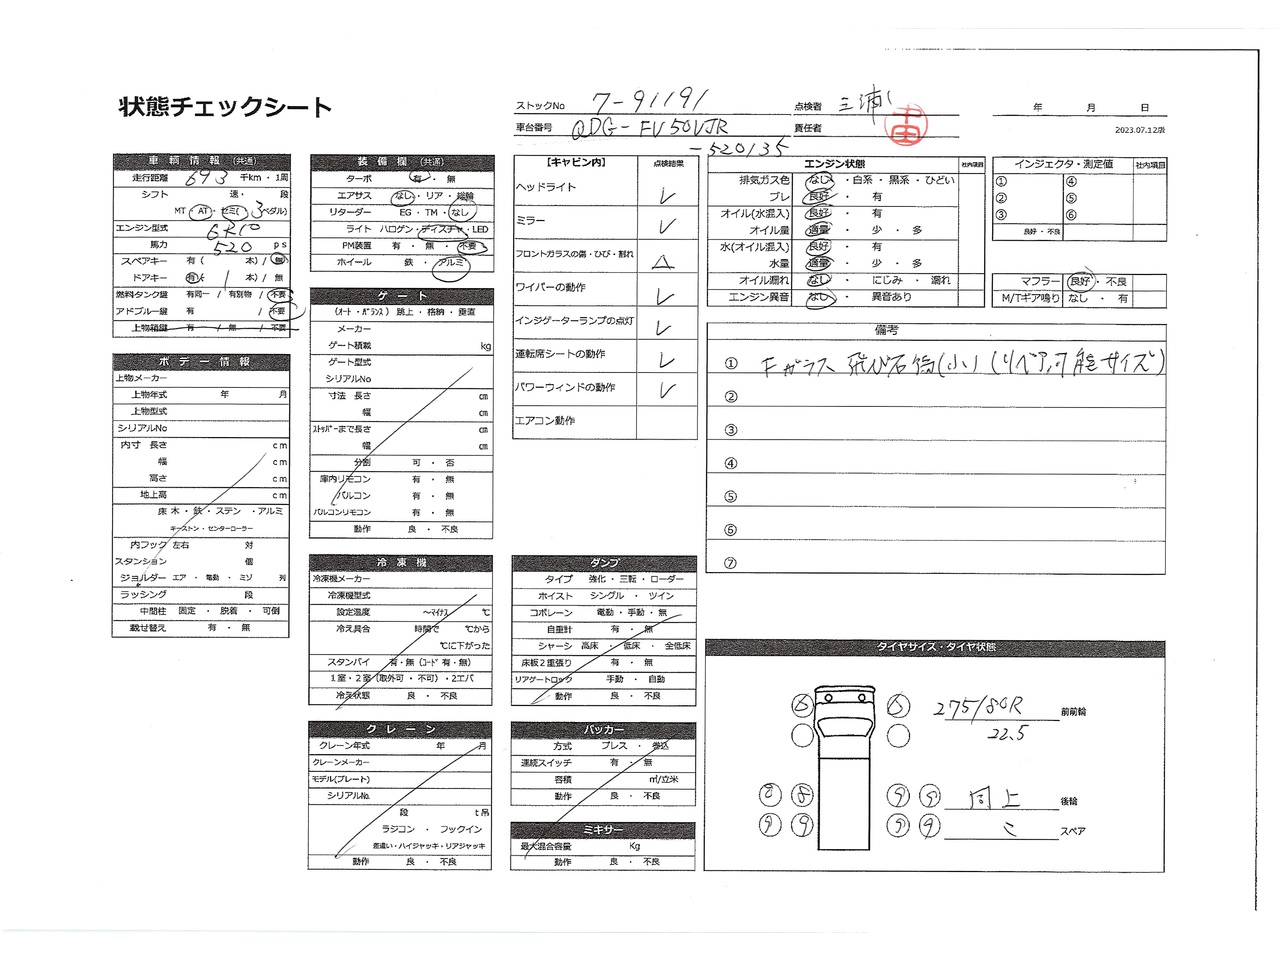 状態チェックシート
ストックNo 7-91191
車台番号 QDG-FV50VJR
-520135
点検者 三浦
責任者
年 月 日
2023.07.12版
車輌情報 (共通)
走行距離 693 千km・1周
シフト 速・ 段
MT・AT・セミ( 3 ペダル)
エンジン型式 6R10
馬力 520 ps
スペアキー 有( 本) / 無
ドアキー 有( 1 本) / 無
燃料タンク鍵 有同一 / 有別物 / 不要
アドブルー鍵 有 / 不要
上物箱鍵 有 / 無 / 不要
ボデー情報
上物メーカー
上物年式 年 月
上物型式
シリアルNo
内寸 長さ cm
幅 cm
高さ cm
地上高 cm
床 木・鉄・ステン・アルミ
キーストン・センターローラー
内フック 左右 対
スタンション 個
ジョルダー エア・電動・ミゾ 列
ラッシング 段
中間柱 固定・脱着・可倒
載せ替え 有・無
装備欄 (共通)
ターボ 有・無
エアサス なし・リア・総輪
リターダー EG・TM・なし
ライト ハロゲン・ディスチャ・LED
PM装置 有・無・不要
ホイール 鉄・アルミ
ゲート
(オート・バランス) 跳上・格納・垂直
メーカー
ゲート積載 kg
ゲート型式
シリアルNo
寸法 長さ cm
幅 cm
ストッパーまで長さ cm
幅 cm
分割 可・否
庫内リモコン 有・無
バルコン 有・無
バルコンリモコン 有・無
動作 良・不良
冷凍機
冷凍機メーカー
冷凍機型式
設定温度 ～マイナス ℃
冷え具合 時間で ℃から
℃に下がった
スタンバイ 有・無 (コード 有・無)
1室・2室(取外可・不可)・2エバ
冷え状態 良・不良
クレーン
クレーン年式 年 月
クレーンメーカー
モデル(プレート)
シリアルNo.
段 t吊
ラジコン・フックイン
差違い・ハイジャッキ・リアジャッキ
動作 良・不良
【キャビン内】 点検結果
ヘッドライト レ
ミラー レ
フロントガラスの傷・ひび・割れ △
ワイパーの動作 レ
インジゲーターランプの点灯 レ
運転席シートの動作 レ
パワーウィンドの動作 レ
エアコン動作
ダンプ
タイプ 強化・三転・ローダー
ホイスト シングル・ツイン
コボレーン 電動・手動・無
自重計 有・無
シャーシ 高床・低床・全低床
床板2重張り 有・無
リアゲートロック 手動・自動
動作 良・不良
パッカー
方式 プレス・巻込
連続スイッチ 有・無
容積 ㎥/立米
動作 良・不良
ミキサー
最大混合容量 Kg
動作 良・不良
エンジン状態 社内項目
排気ガス色 なし・白系・黒系・ひどい
ブレ 良好・有
オイル(水混入) 良好・有
オイル量 適量・少・多
水(オイル混入) 良好・有
水量 適量・少・多
オイル漏れ なし・にじみ・漏れ
エンジン異音 なし・異音あり
インジェクタ・測定値 社内項目
① ④
② ⑤
③ ⑥
良好・不良
マフラー 良好・不良
M/Tギア鳴り なし・有
備考
① Fガラス 飛び石傷(小) (リペア可能サイズ)
②
③
④
⑤
⑥
⑦
タイヤサイズ・タイヤ状態
6 6 275/80R 前前輪
22.5
8 8 9 9 同上 後輪
9 9 9 9 ミ スペア